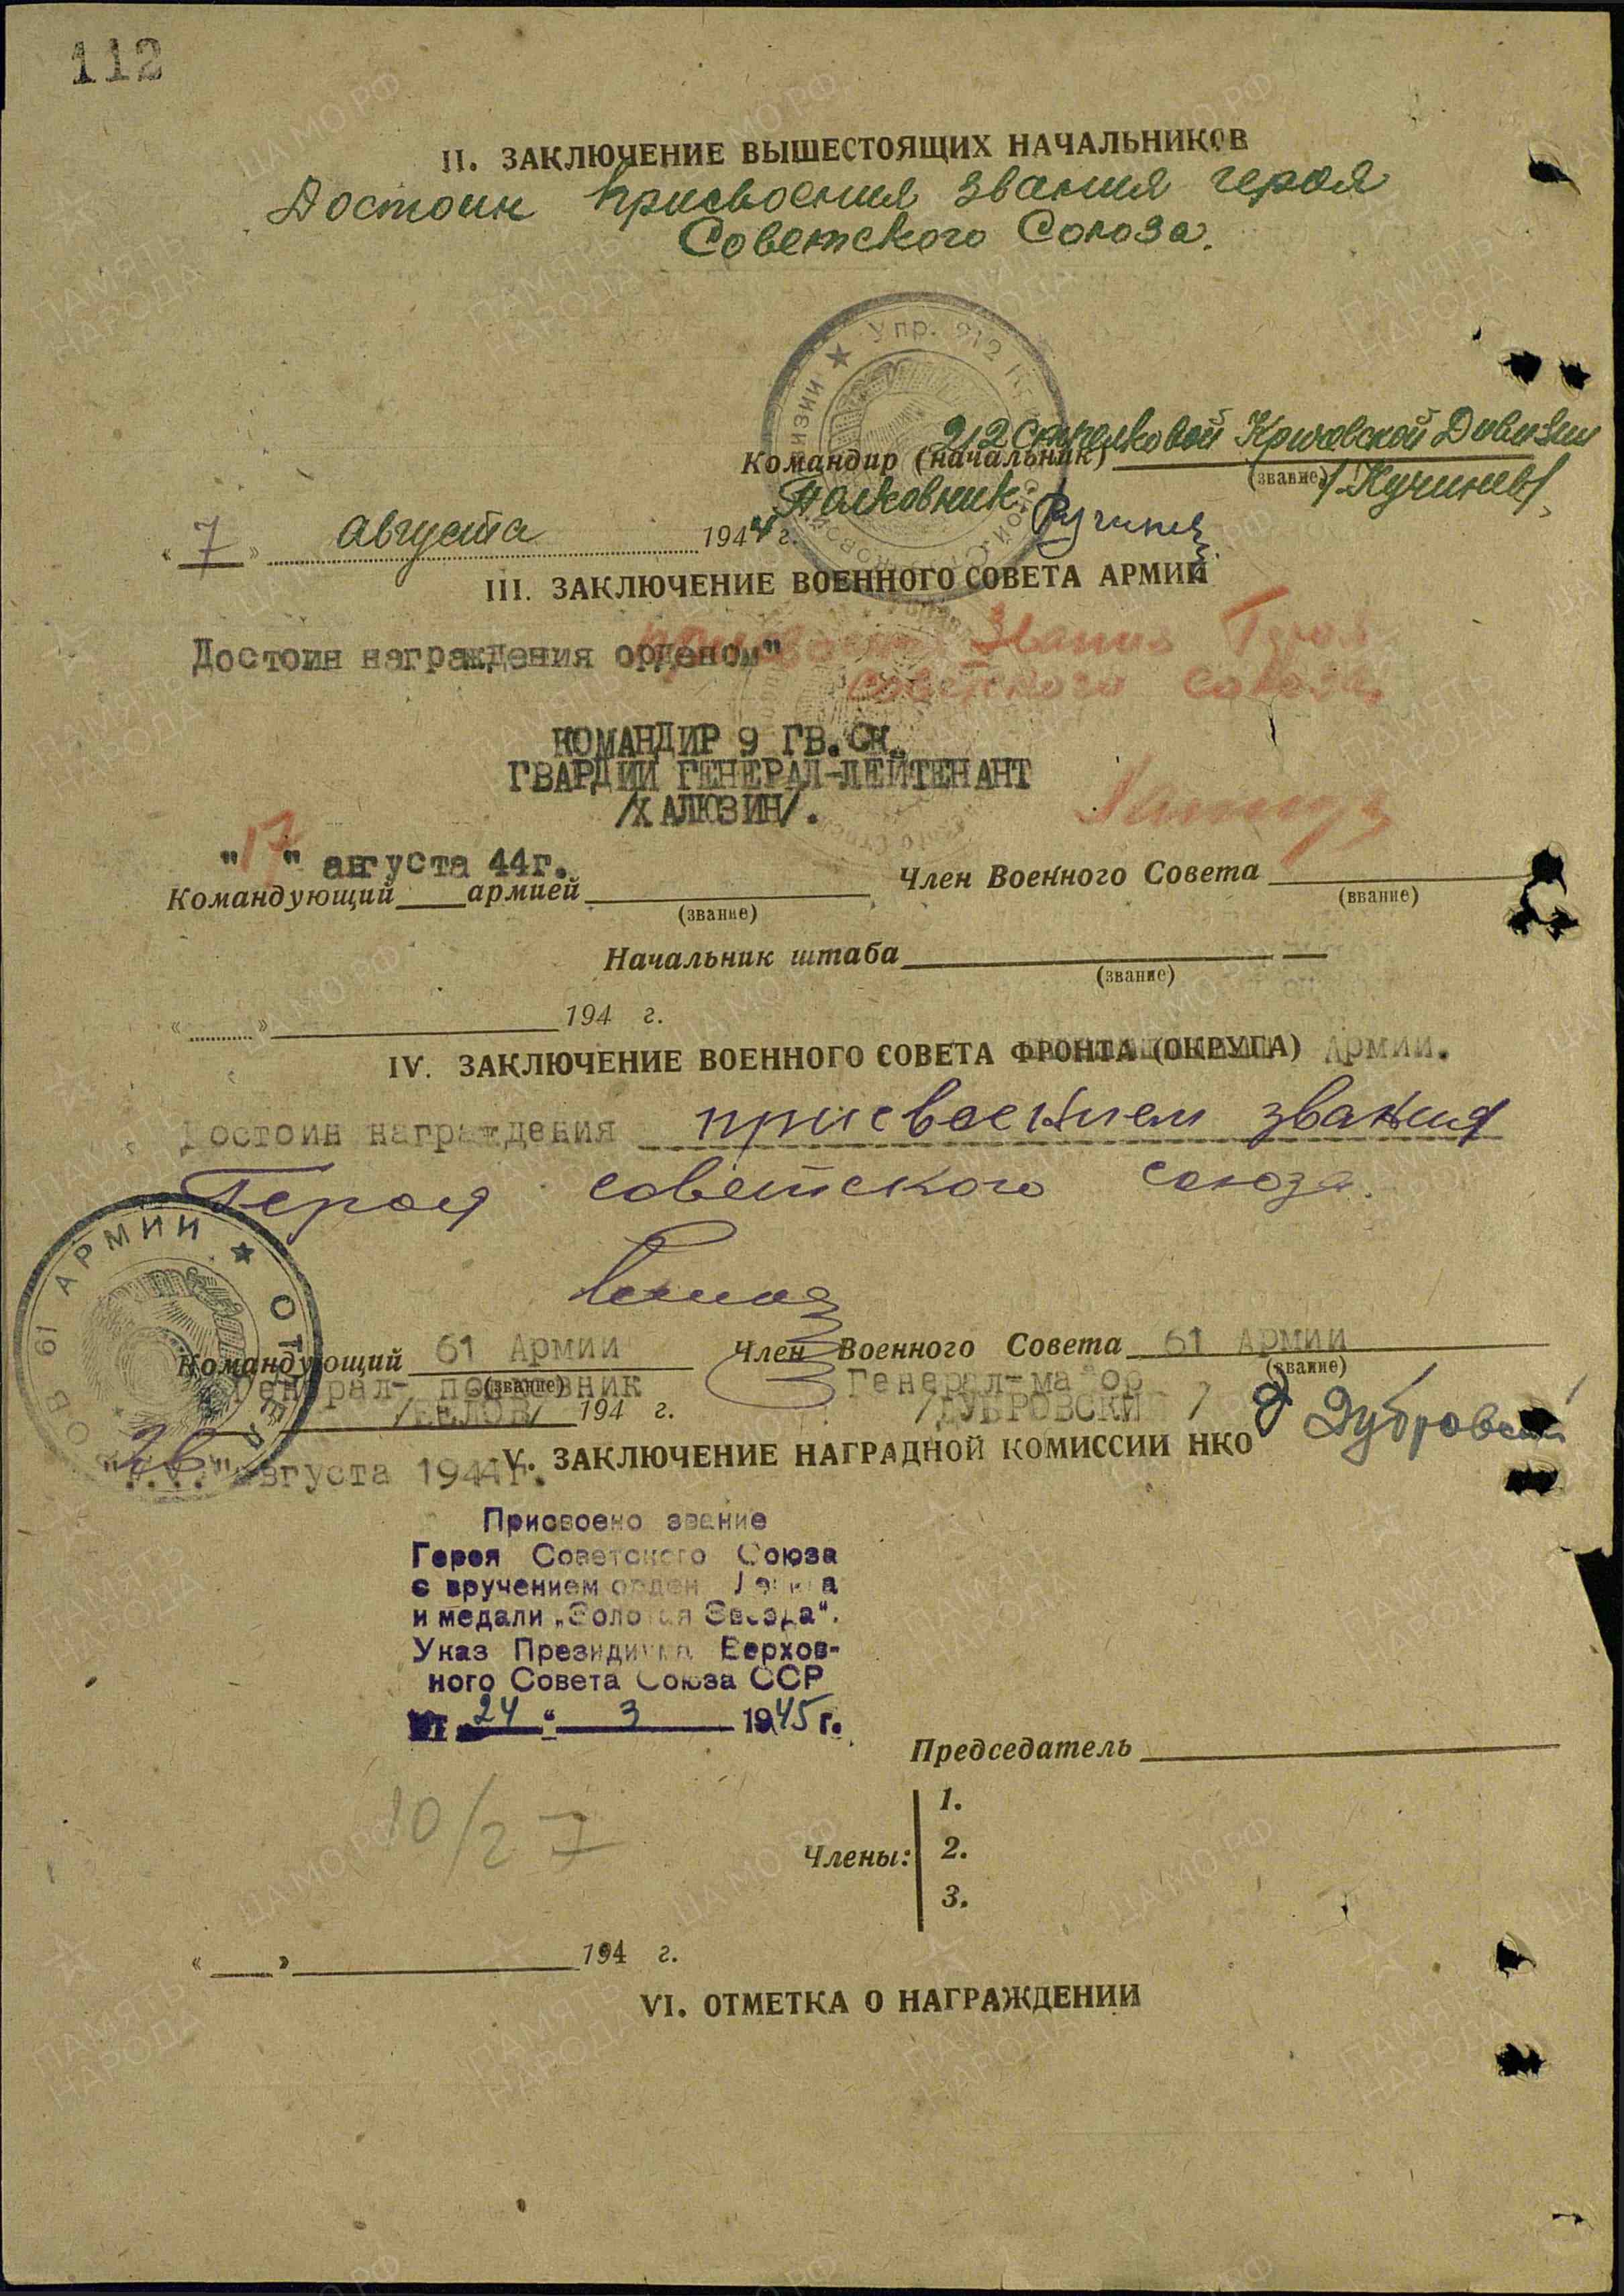 112
II. ЗАКЛЮЧЕНИЕ ВЫШЕСТОЯЩИХ НАЧАЛЬНИКОВ
Достоин присвоения звания героя
Советского Союза.
Упр. 212
212 Стрелковой Кричевской Дивизии
Командир (начальник)
(звание)
Полковник /Кучинев/
„7" августа 1944 г.
III. ЗАКЛЮЧЕНИЕ ВОЕННОГО СОВЕТА АРМИИ
Достоин награждения орденом" присвоения Звания Героя
советского союза.
КОМАНДИР 9 ГВ.СК.
ГВАРДИИ ГЕНЕРАЛ-ЛЕЙТЕНАНТ
/ХАЛЮЗИН/.
"17" августа 44г.
Командующий армией Член Военного Совета
(звание) (звание)
Начальник штаба
(звание)
« » 194 г.
IV. ЗАКЛЮЧЕНИЕ ВОЕННОГО СОВЕТА ФРОНТА (ОКРУГА) Армии.
Достоин награждения присвоением звания
Героя советского союза.
61 АРМИИ ★
Командующий 61 Армии Член Военного Совета 61 Армии
(звание) (звание)
Генерал-полковник Генерал-майор
/БЕЛОВ/ 194 г. /ДУБРОВСКИЙ/ Дубровский
V. ЗАКЛЮЧЕНИЕ НАГРАДНОЙ КОМИССИИ НКО
"26" августа 1944г.
Присвоено звание
Героя Советского Союза
с вручением орден Ленина
и медали „Золотая Звезда".
Указ Президиума Верхов-
ного Совета Союза ССР
от 24 " 3 1945 г.
Председатель
10/27
Члены:
1.
2.
3.
« » 194 г.
VI. ОТМЕТКА О НАГРАЖДЕНИИ
ПАМЯТЬ НАРОДА
ЦАМО.РФ